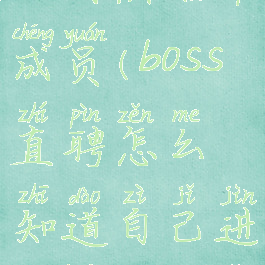 chéng yuán
成员(boss
zhí pìn zěn me
直聘怎么
zhī dào zì jǐ jìn
知道自己进